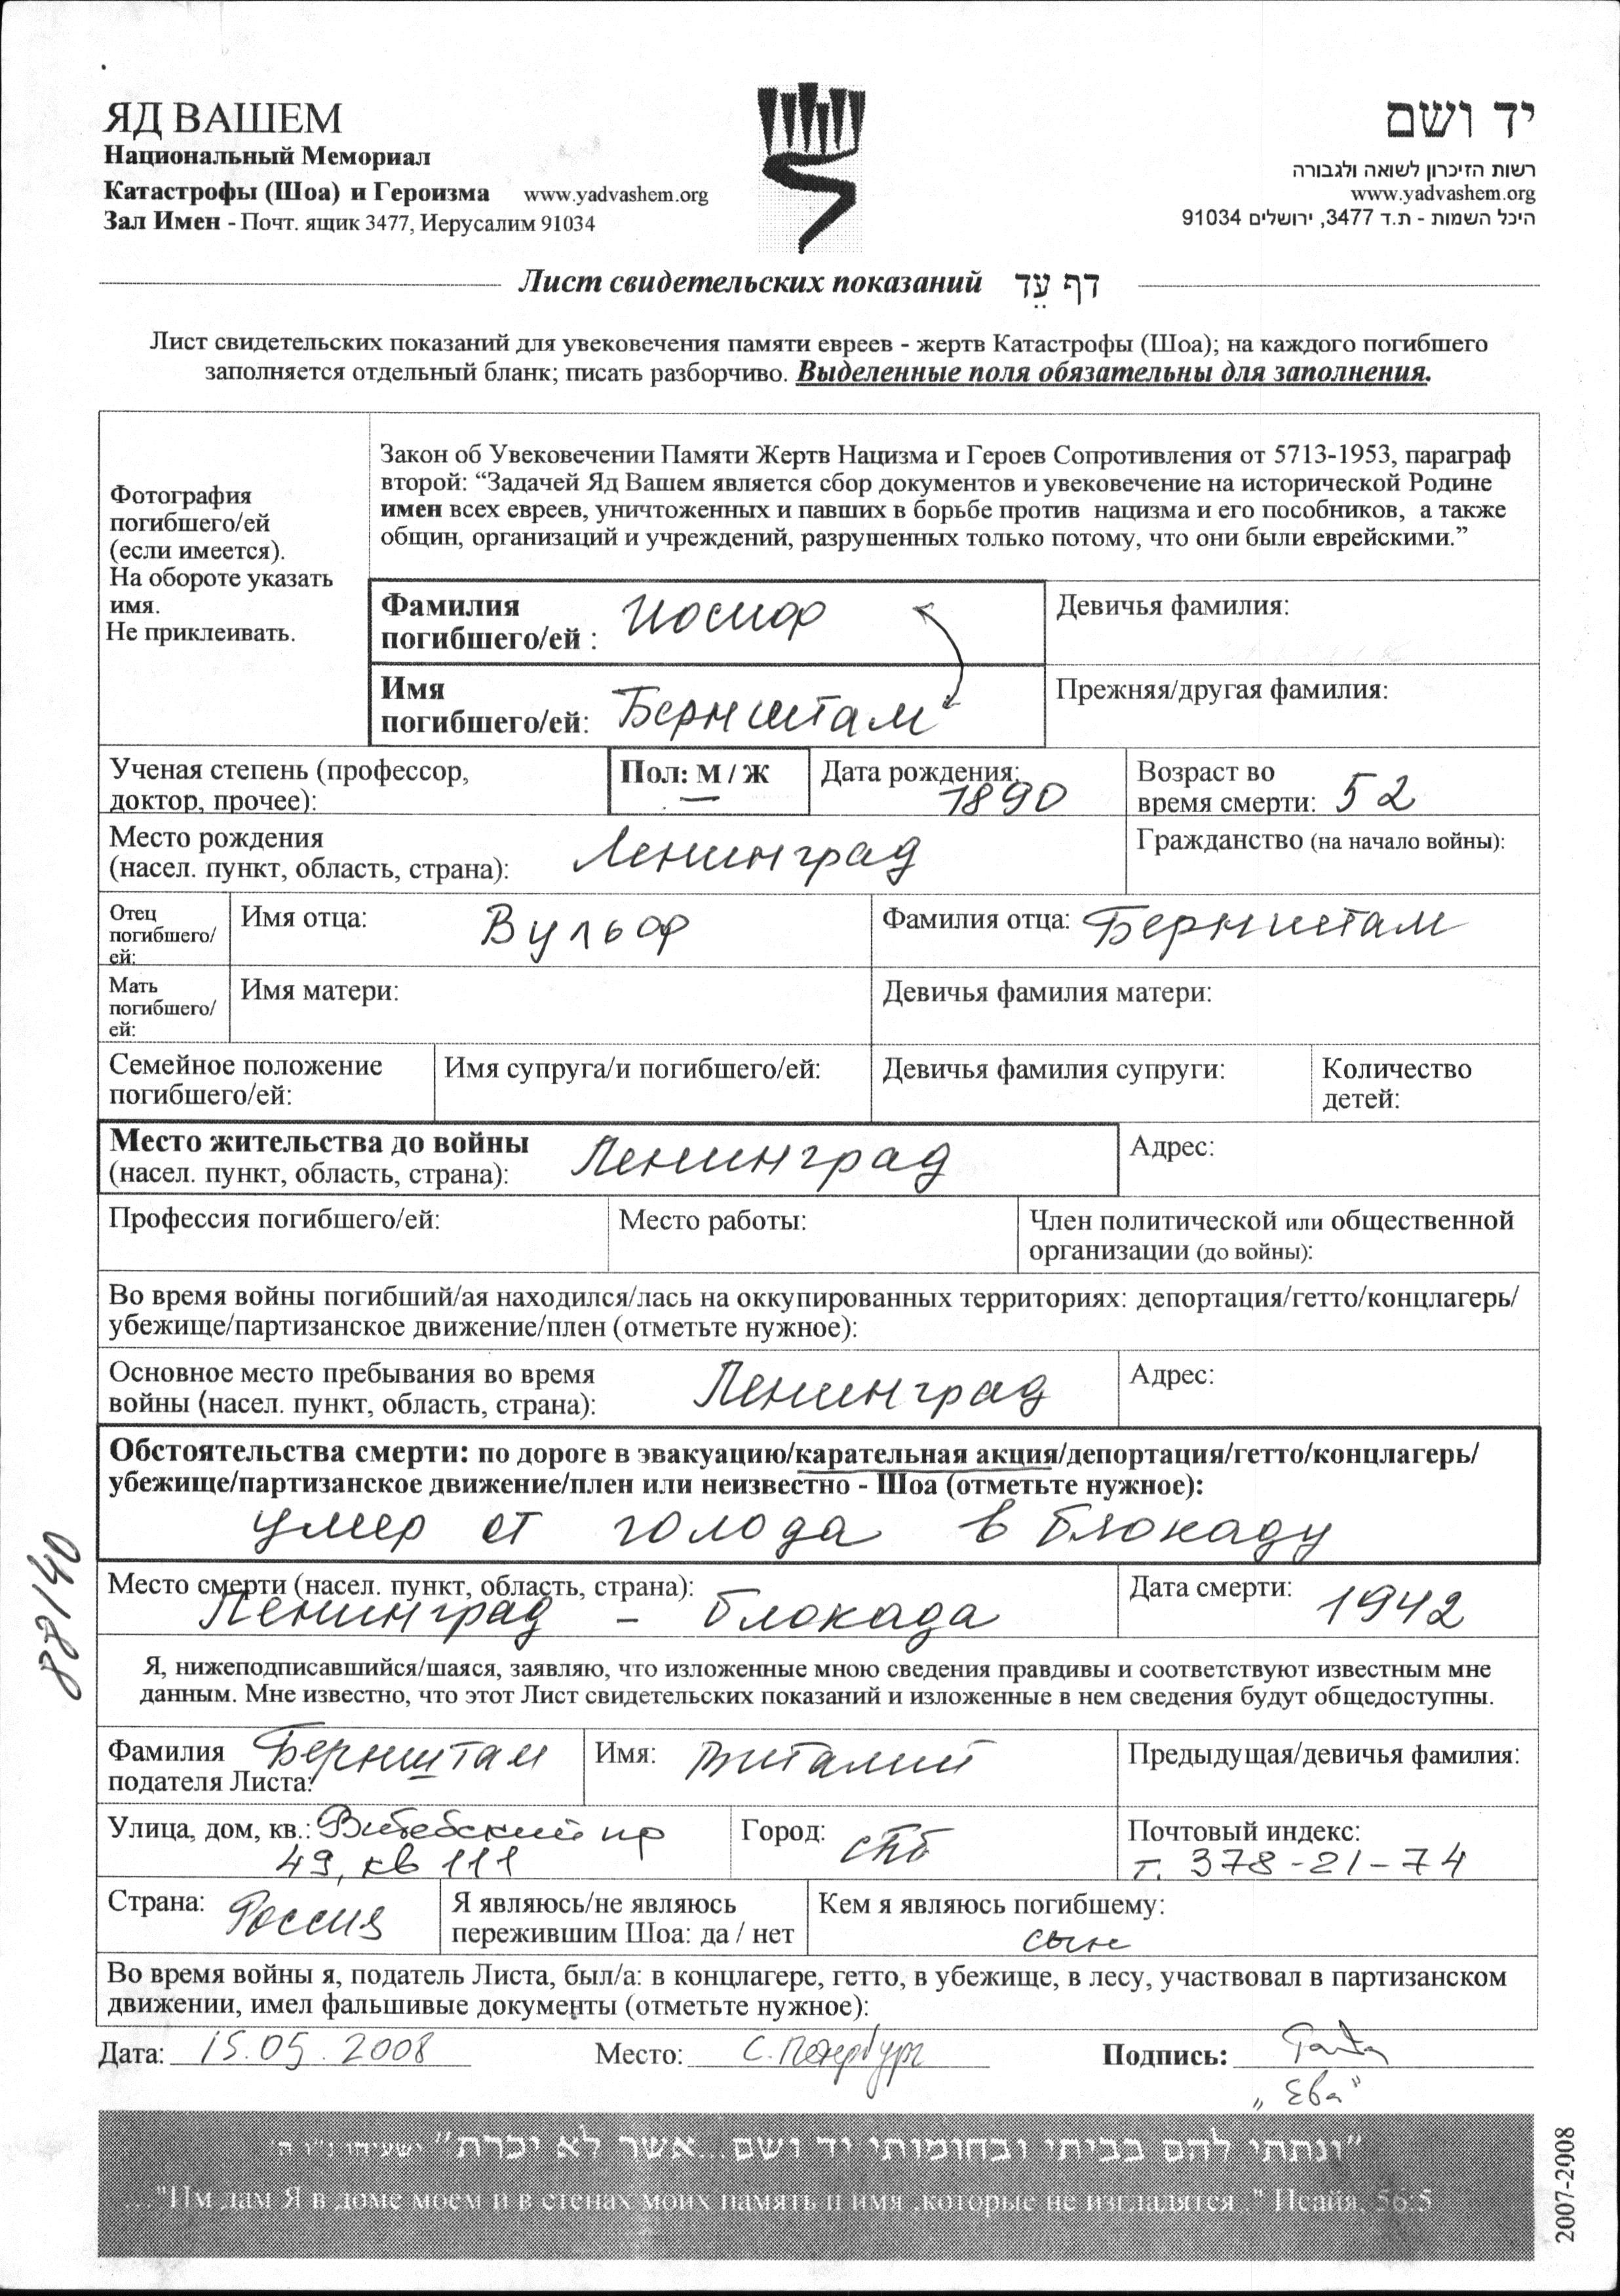 ЯД ВАШЕМ
Национальный Мемориал
Катастрофы (Шоа) и Героизма www.yadvashem.org
Зал Имен - Почт. ящик 3477, Иерусалим 91034
יד ושם
רשות הזיכרון לשואה ולגבורה
www.yadvashem.org
היכל השמות - ת.ד 3477, ירושלים 91034
Лист свидетельских показаний דף עֵד
Лист свидетельских показаний для увековечения памяти евреев - жертв Катастрофы (Шоа); на каждого погибшего
заполняется отдельный бланк; писать разборчиво. Выделенные поля обязательны для заполнения.
Фотография
погибшего/ей
(если имеется).
На обороте указать
имя.
Не приклеивать.
Закон об Увековечении Памяти Жертв Нацизма и Героев Сопротивления от 5713-1953, параграф
второй: “Задачей Яд Вашем является сбор документов и увековечение на исторической Родине
имен всех евреев, уничтоженных и павших в борьбе против нацизма и его пособников, а также
общин, организаций и учреждений, разрушенных только потому, что они были еврейскими.”
Фамилия
погибшего/ей : Иосиф
Девичья фамилия:
Имя
погибшего/ей: Бернштам
Прежняя/другая фамилия:
Ученая степень (профессор,
доктор, прочее):
Пол: М / Ж
Дата рождения: 1890
Возраст во
время смерти: 52
Место рождения
(насел. пункт, область, страна): Ленинград
Гражданство (на начало войны):
Отец
погибшего/
ей:
Имя отца: Вульф
Фамилия отца: Бернштам
Мать
погибшего/
ей:
Имя матери:
Девичья фамилия матери:
Семейное положение
погибшего/ей:
Имя супруга/и погибшего/ей:
Девичья фамилия супруги:
Количество
детей:
Место жительства до войны
(насел. пункт, область, страна): Ленинград
Адрес:
Профессия погибшего/ей:
Место работы:
Член политической или общественной
организации (до войны):
Во время войны погибший/ая находился/лась на оккупированных территориях: депортация/гетто/концлагерь/
убежище/партизанское движение/плен (отметьте нужное):
Основное место пребывания во время
войны (насел. пункт, область, страна): Ленинград
Адрес:
Обстоятельства смерти: по дороге в эвакуацию/карательная акция/депортация/гетто/концлагерь/
убежище/партизанское движение/плен или неизвестно - Шоа (отметьте нужное):
умер от голода в блокаду
Место смерти (насел. пункт, область, страна):
Ленинград - блокада
Дата смерти: 1942
88/40
Я, нижеподписавшийся/шаяся, заявляю, что изложенные мною сведения правдивы и соответствуют известным мне
данным. Мне известно, что этот Лист свидетельских показаний и изложенные в нем сведения будут общедоступны.
Фамилия
подателя Листа: Бернштам
Имя: Виталий
Предыдущая/девичья фамилия:
Улица, дом, кв.: Витебский пр
49, кв 111
Город: СПб
Почтовый индекс:
т. 378-21-74
Страна: Россия
Я являюсь/не являюсь
пережившим Шоа: да / нет
Кем я являюсь погибшему:
сын
Во время войны я, податель Листа, был/а: в концлагере, гетто, в убежище, в лесу, участвовал в партизанском
движении, имел фальшивые документы (отметьте нужное):
Дата: 15.05.2008 Место: С. Петербург Подпись:
„Ева”
"ונתתי להם בביתי ובחומותי יד ושם...אשר לא יכרת" ישעיהו נ"ו ה'
..."Им дам Я в доме моем и в стенах моих память и имя ,которые не изгладятся ." Исайя, 56:5
2007-2008